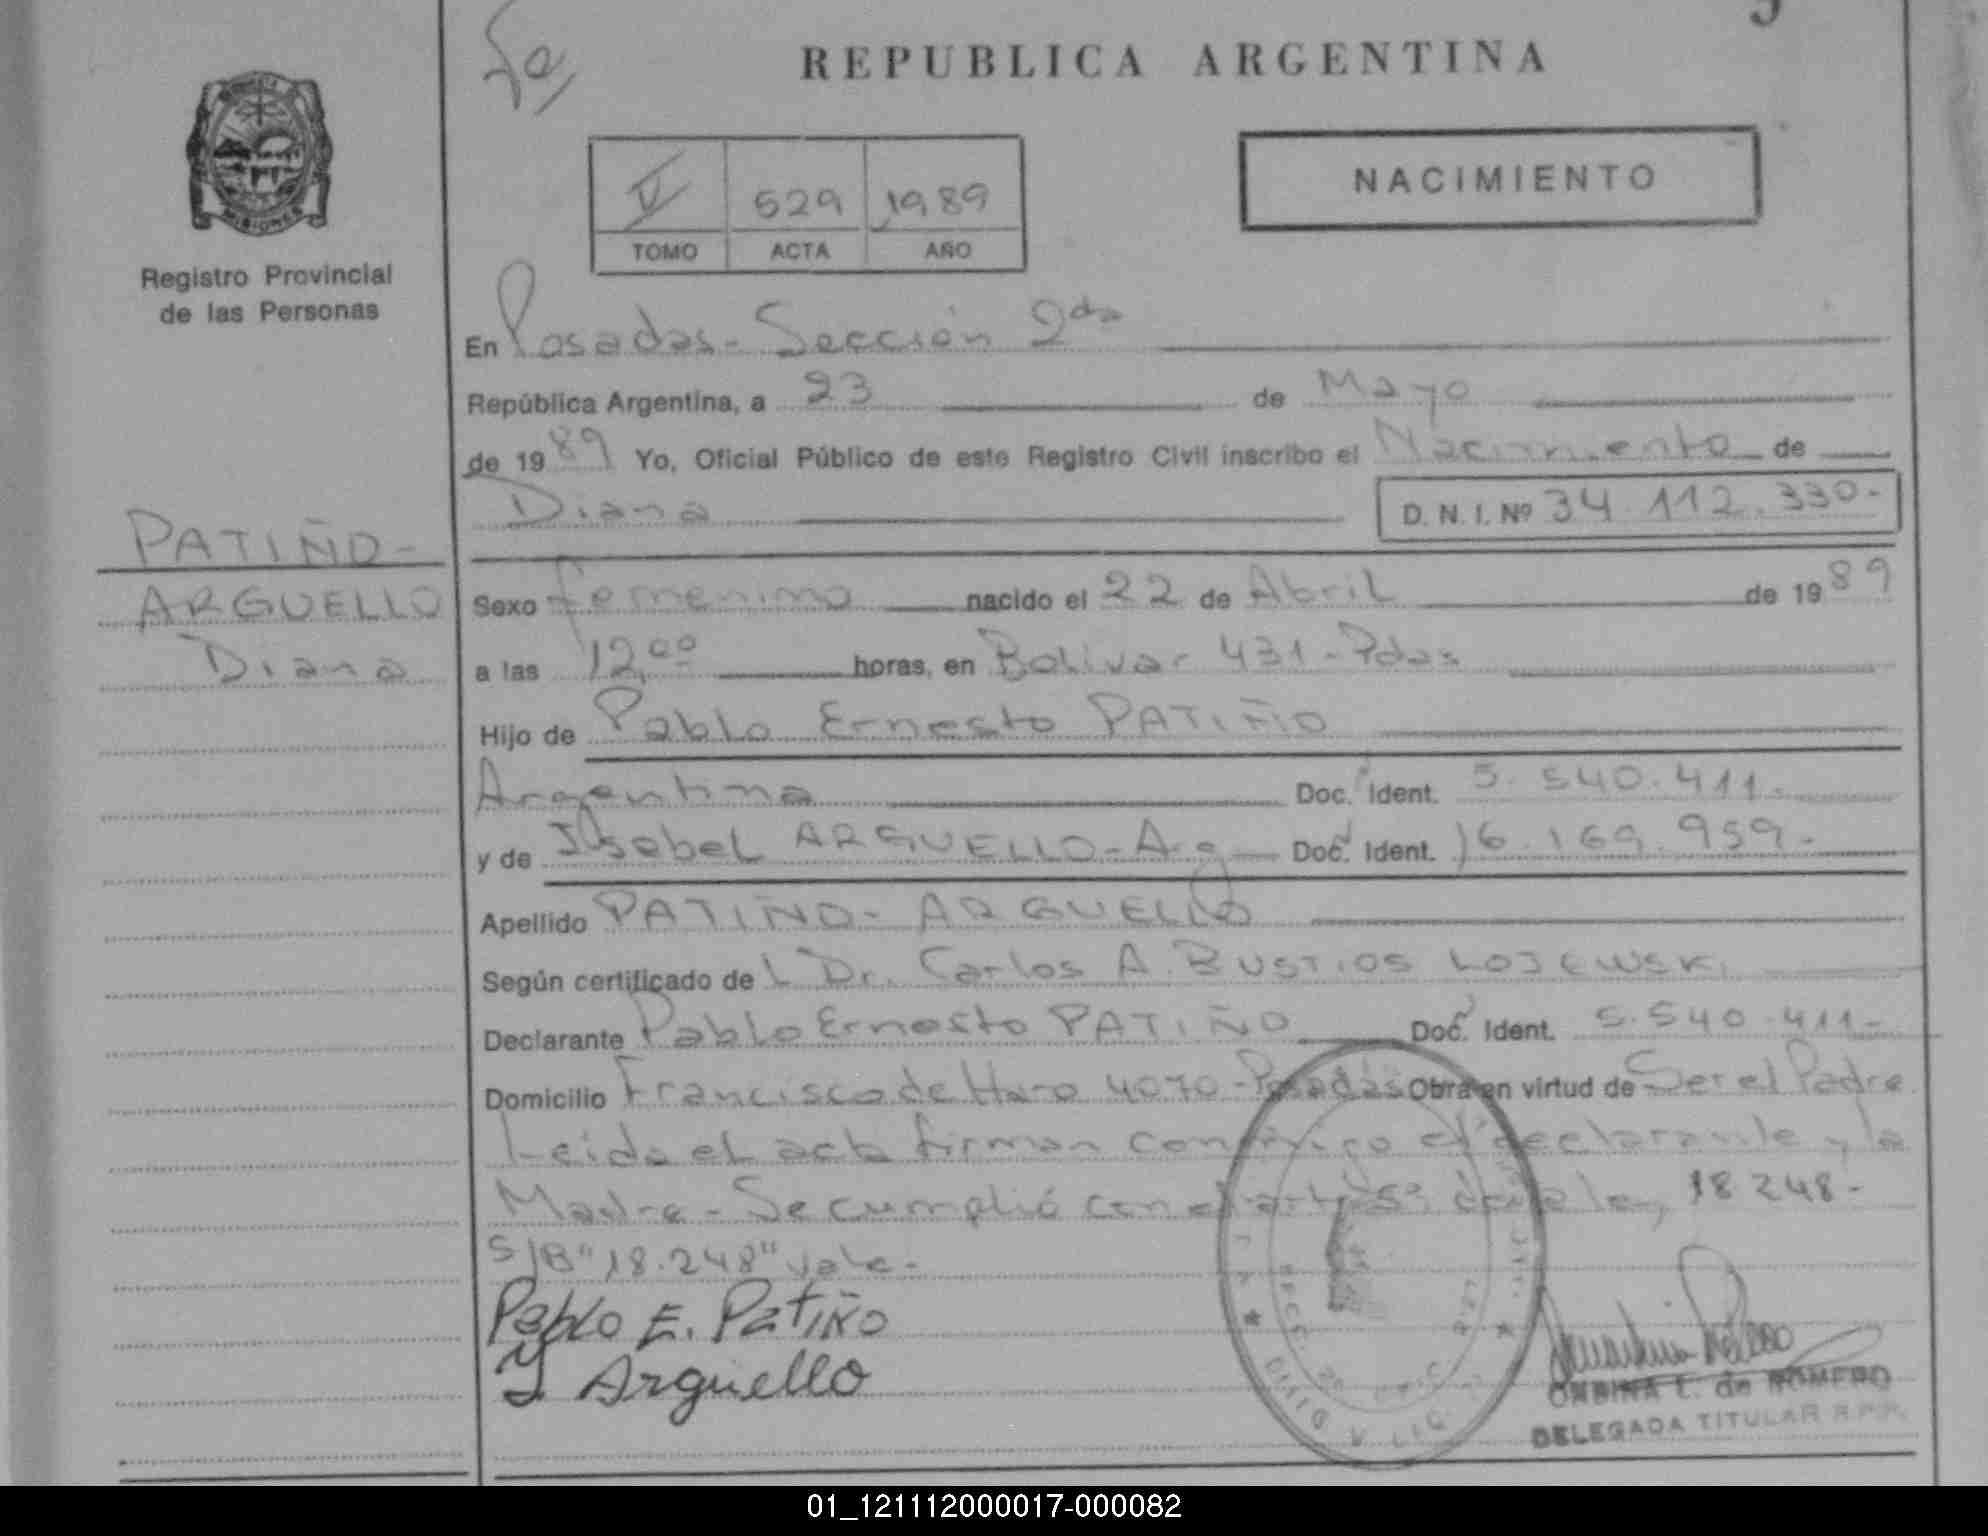 REPUBLICA ARGENTINA
NACIMIENTO
V 529 1989
TOMO ACTA AÑO
MISIONES
Registro Provincial
de las Personas
En Posadas - Sección 2da
República Argentina, a 23 de Mayo
de 1989 Yo, Oficial Público de este Registro Civil inscribo el Nacimiento de
Diana D. N. I. Nº 34.112.330-
PATIÑO-
ARGUELLO
Diana
Sexo femenino nacido el 22 de Abril de 1989
a las 12,00 horas, en Bolivar 431 - Pdas
Hijo de Pablo Ernesto PATIÑO
Argentina Doc. Ident. 5.540.411.
y de Isabel ARGUELLO - Arg Doc. Ident. 16.169.959-
Apellido PATIÑO - ARGUELLO
Según certificado de L Dr. Carlos A. BUSTIOS LOJEWSKI
Declarante Pablo Ernesto PATIÑO Doc. Ident. 5.540.411-
Domicilio Francisco de Haro 4070 - Posadas Obra en virtud de Ser el Padre
Leida el acta firman conmigo el declarante y la
Madre - Se cumplió con el art. 5º de la ley 18248-
S/B "18.248" vale-
Pablo E. Patiño
Y Arguello
ONDINA L. de ROMERO
DELEGADA TITULAR R.P.P.
01_121112000017-000082